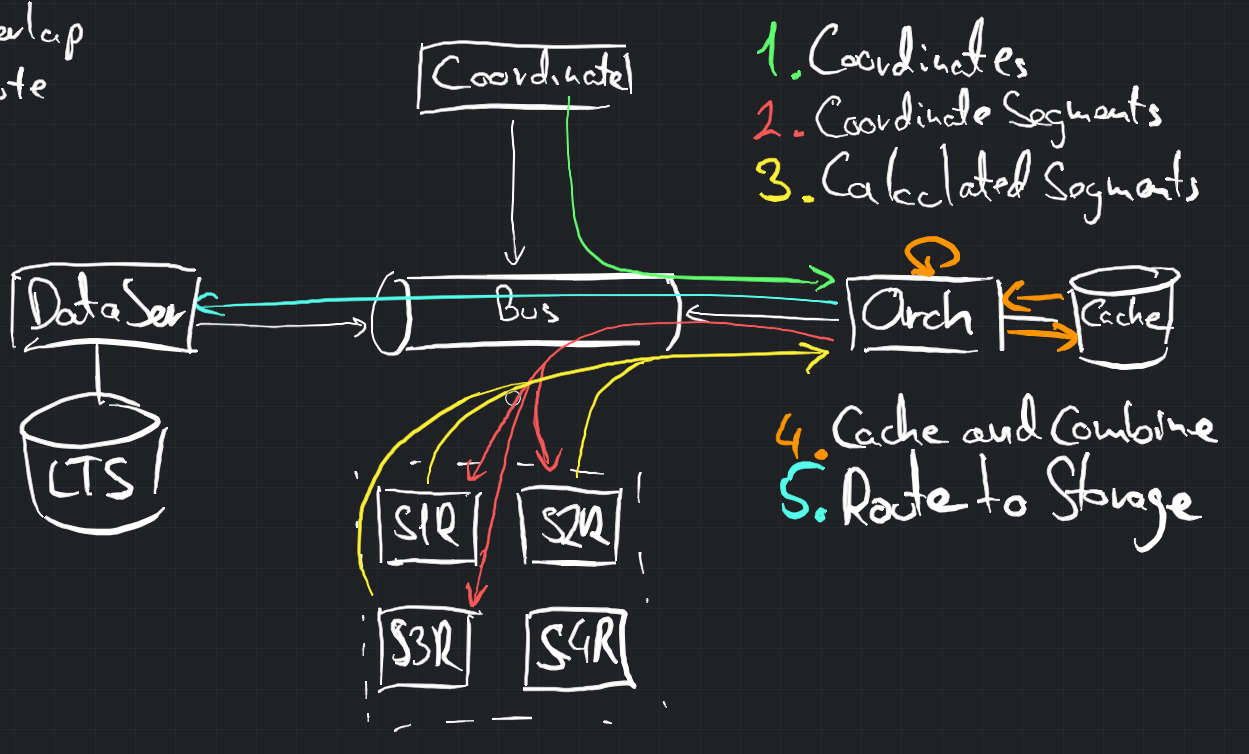 Coordinates
1. Coordinates
2. Coordinate Segments
3. Calclated Segments
DataSer
Bus
Arch
Cache
LTS
4. Cache and Combine
5. Route to Storage
S1R
S2R
S3R
S4R